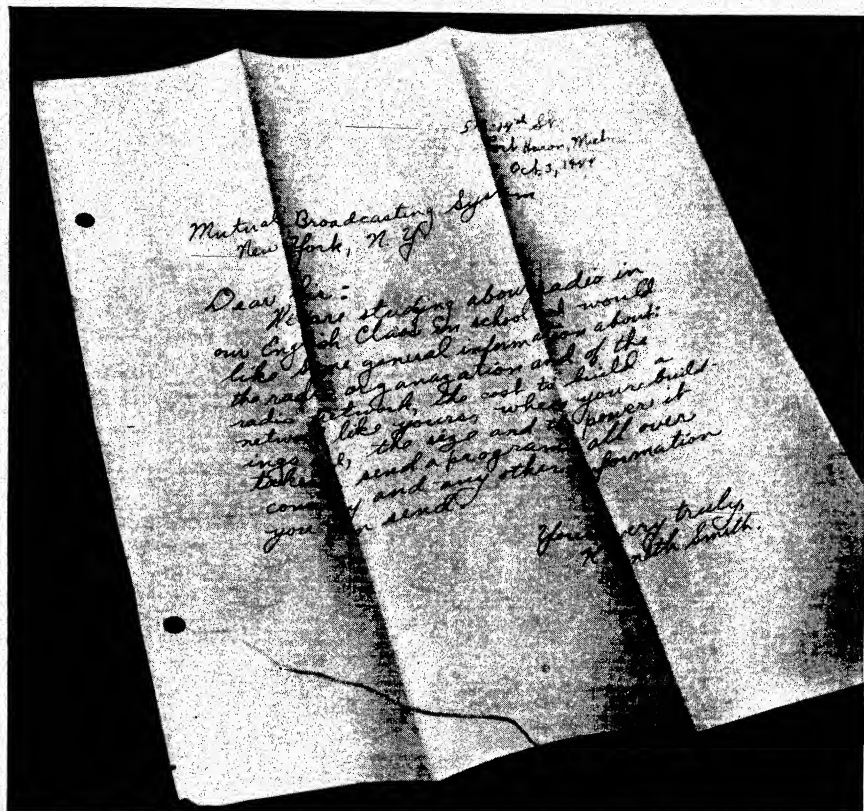 St.
Port Huron, Mich.
Oct. 3, 1944
Mutual Broadcasting System
New York, N.Y.
Dear Sir:
We are studying about radio in
our English Class in school and would
like some general information about:
the radio organazation and of the
radio network, the cost to build a
network like yours, where your build-
ings, the size and the power it
takes send a program all over
country and any other information
you can send.
Yours very truly,
Kenneth Smith.